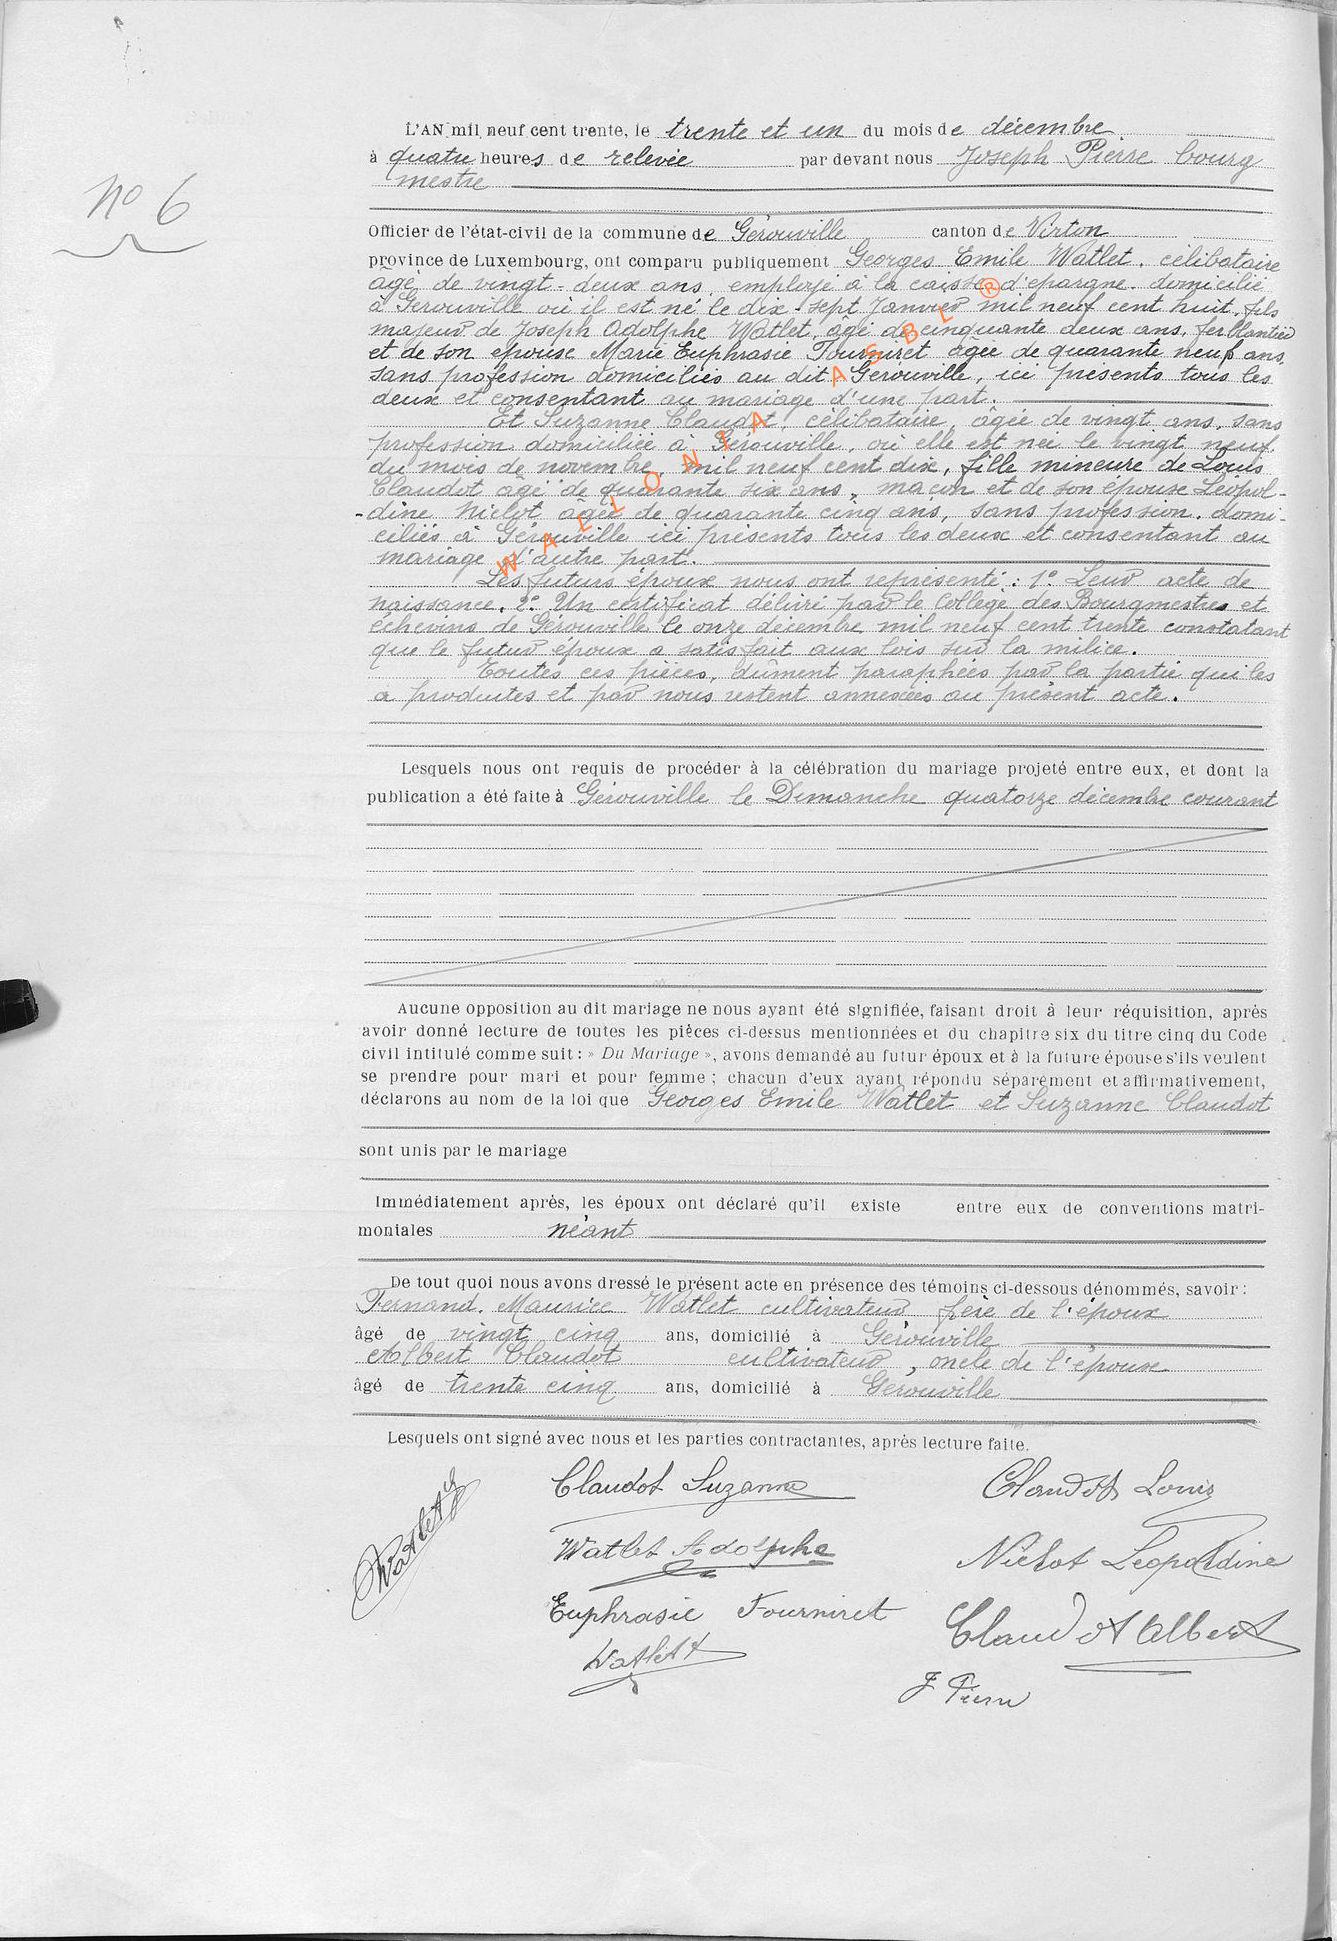 L'AN mil neuf cent trente, le trente et un du mois de décembre
à quatre heures de relevée par devant nous Joseph Pierre bourg
mestre
N° 6
Officier de l'état-civil de la commune de Gérouville canton de Virton
province de Luxembourg, ont comparu publiquement Georges Emile Watlet, célibataire
âgé de vingt-deux ans, employé à la caisse d'épargne. domicilié
à Gérouville où il est né le dix-sept Janvier mil neuf cent huit, fils
majeur de Joseph Adolphe Watlet, âgé de cinquante deux ans, ferblantier
et de son épouse Marie Euphrasie Fourniret âgée de quarante neuf ans,
sans profession domiciliés au dit Gérouville, ici présents tous les
deux et consentant au mariage d'une part.
Et Suzanne Claudot, célibataire, âgée de vingt ans, sans
profession domiciliée à Gérouville, où elle est née le vingt neuf
du mois de novembre, mil neuf cent dix, fille mineure de Louis
Claudot âgé de quarante six ans, maçon et de son épouse Léopol-
-dine Niclot âgée de quarante cinq ans, sans profession. domi-
ciliés à Gérouville ici présents tous les deux et consentant au
mariage d'autre part.
WALLONIA ASBL ®
Les futurs époux nous ont représenté : 1° Leur acte de
naissance. 2° Un certificat délivré par le Collège des Bourgmestres et
échevins de Gérouville le onze décembre mil neuf cent trente constatant
que le futur époux a satisfait aux lois sur la milice.
Toutes ces pièces, dûment paraphées par la partie qui les
a produites et par nous restent annexées au présent acte.
Lesquels nous ont requis de procéder à la célébration du mariage projeté entre eux, et dont la
publication a été faite à Gérouville le Dimanche quatorze décembre courant
Aucune opposition au dit mariage ne nous ayant été signifiée, faisant droit à leur réquisition, après
avoir donné lecture de toutes les pièces ci-dessus mentionnées et du chapitre six du titre cinq du Code
civil intitulé comme suit : » Du Mariage », avons demandé au futur époux et à la future épouse s'ils veulent
se prendre pour mari et pour femme ; chacun d'eux ayant répondu séparément et affirmativement,
déclarons au nom de la loi que Georges Emile Watlet et Suzanne Claudot
sont unis par le mariage
Immédiatement après, les époux ont déclaré qu'il existe entre eux de conventions matri-
moniales néant
De tout quoi nous avons dressé le présent acte en présence des témoins ci-dessous dénommés, savoir :
Fernand. Maurice Watlet cultivateur frère de l'époux
âgé de vingt cinq ans, domicilié à Gérouville
Albert Claudot cultivateur, oncle de l'épouse
âgé de trente cinq ans, domicilié à Gérouville
Lesquels ont signé avec nous et les parties contractantes, après lecture faite.
Claudot Suzanne Claudot Louis
Watlet
Watlet Adolphe Niclot Léopoldine
Euphrasie Fourniret Claudot Albert
Watlet
J Pierre